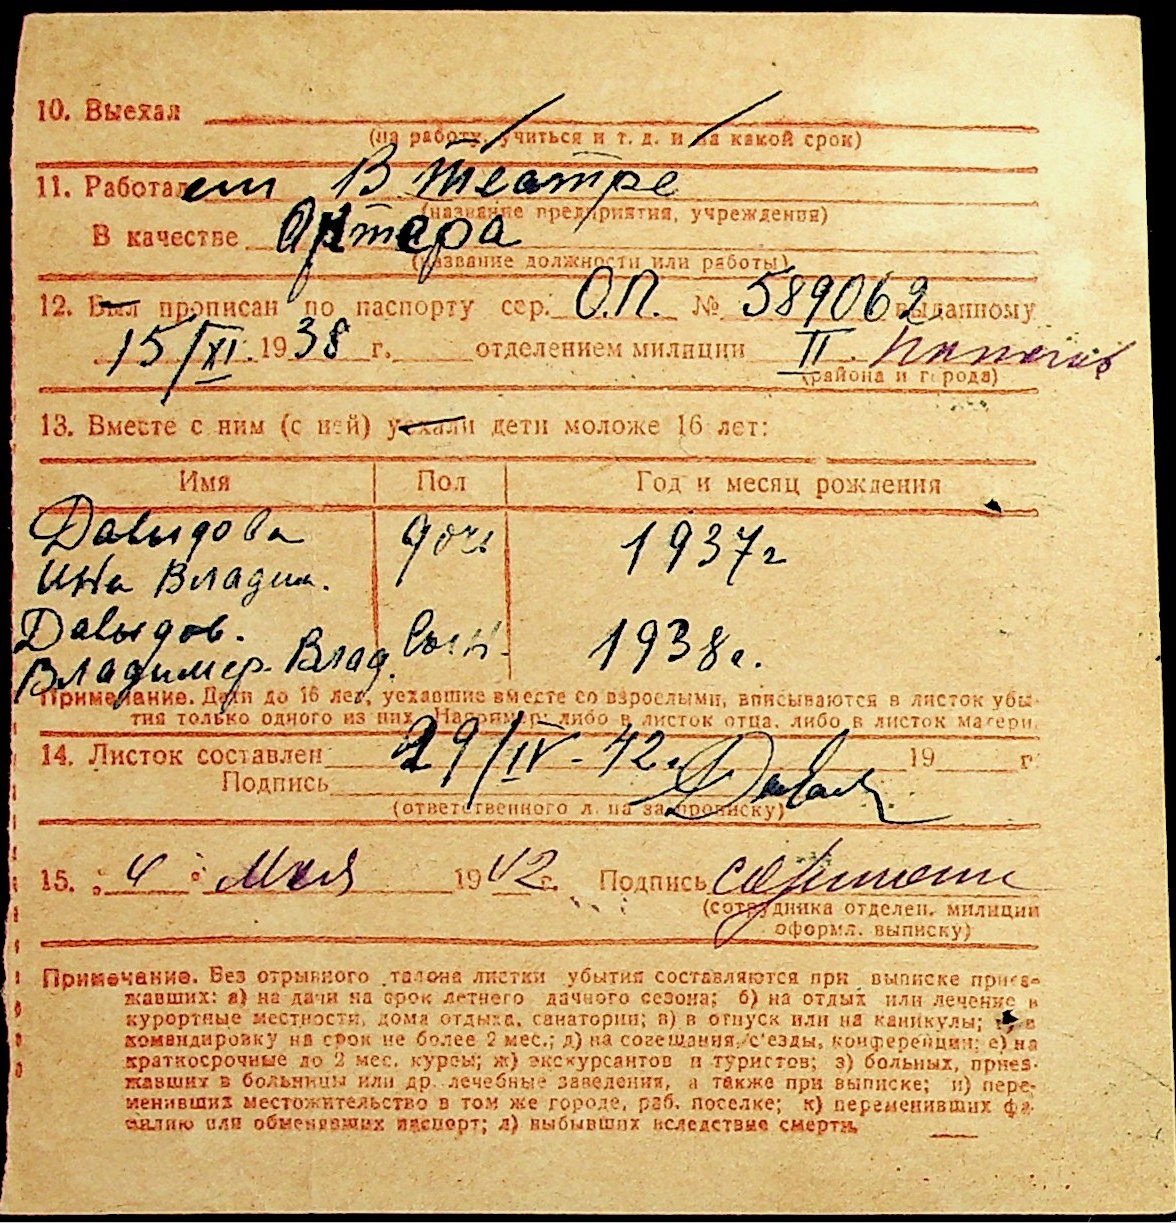 10. Выехал
(на работу, учиться и т. д. и на какой срок)
11. Работает В театре
(название предприятия, учреждения)
В качестве Актера
(название должности или работы)
12. Был прописан по паспорту сер. О.П. № 589062 выданному
15/XI. 1938 г. отделением милиции II.
(района и города)
13. Вместе с ним (с ней) уехали дети моложе 16 лет:
Имя Пол Год и месяц рождения
Давыдова дочь 1937 г
Инна Владим.
Давыдов. сын. 1938 г.
Владимер. Влад.
Примечание. Дети до 16 лет, уехавшие вместе со взрослыми, вписываются в листок убы-
тия только одного из них. Например: либо в листок отца, либо в листок матери.
14. Листок составлен 29/IV - 42 г. 19 г.
Подпись
(ответственного л. на за прописку)
15. „4" Мая 1942 г. Подпись
(сотрудника отделен. милиции
оформл. выписку)
Примечание. Без отрывного талона листки убытия составляются при выписке приез-
жавших: а) на дачи на срок летнего дачного сезона; б) на отдых или лечение в
курортные местности, дома отдыха, санатории; в) в отпуск или на каникулы; г) в
командировку на срок не более 2 мес.; д) на совещания, с'езды, конференции; е) на
краткосрочные до 2 мес. курсы; ж) экскурсантов и туристов; з) больных, приез-
жавших в больницы или др. лечебные заведения, а также при выписке; и) пере-
менивших местожительство в том же городе, раб. поселке; к) переменивших фа-
милию или обменявших паспорт; л) выбывших вследствие смерти.